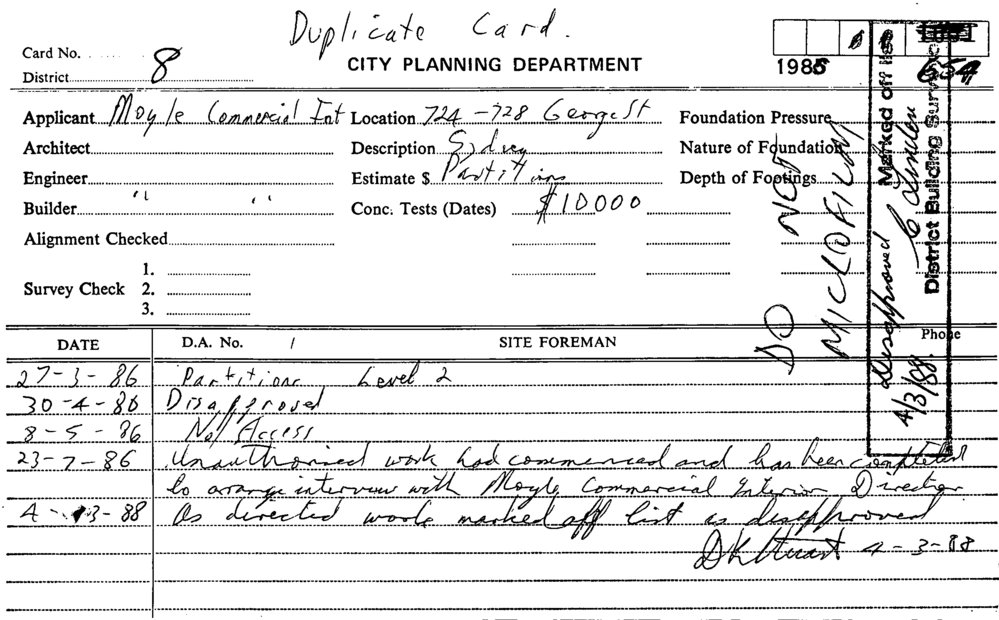 Duplicate Card.
Card No.
District 8
CITY PLANNING DEPARTMENT
1986
654
Applicant Moyle Commercial Int
Location 724 - 728 George St
Foundation Pressure
Architect
Description Sydney
Nature of Foundation
Engineer
Estimate $ Partitions
Depth of Footings
Builder " "
Conc. Tests (Dates) $10000
Alignment Checked
1.
Survey Check 2.
3.
DO NOT
MICLOFILM
Marked off list
Disapproved
4/3/88.
District Building Surveyor
DATE D.A. No. / SITE FOREMAN Phone
27-3-86 Partitions Level 2
30-4-86 Disapproved
8-5-86 No Access
23-7-86 Unauthorised work had commenced and has been completed
to arrange interview with Moyle Commercial Interior Director
4-3-88 As directed work marked off list as disapproved
4-3-88